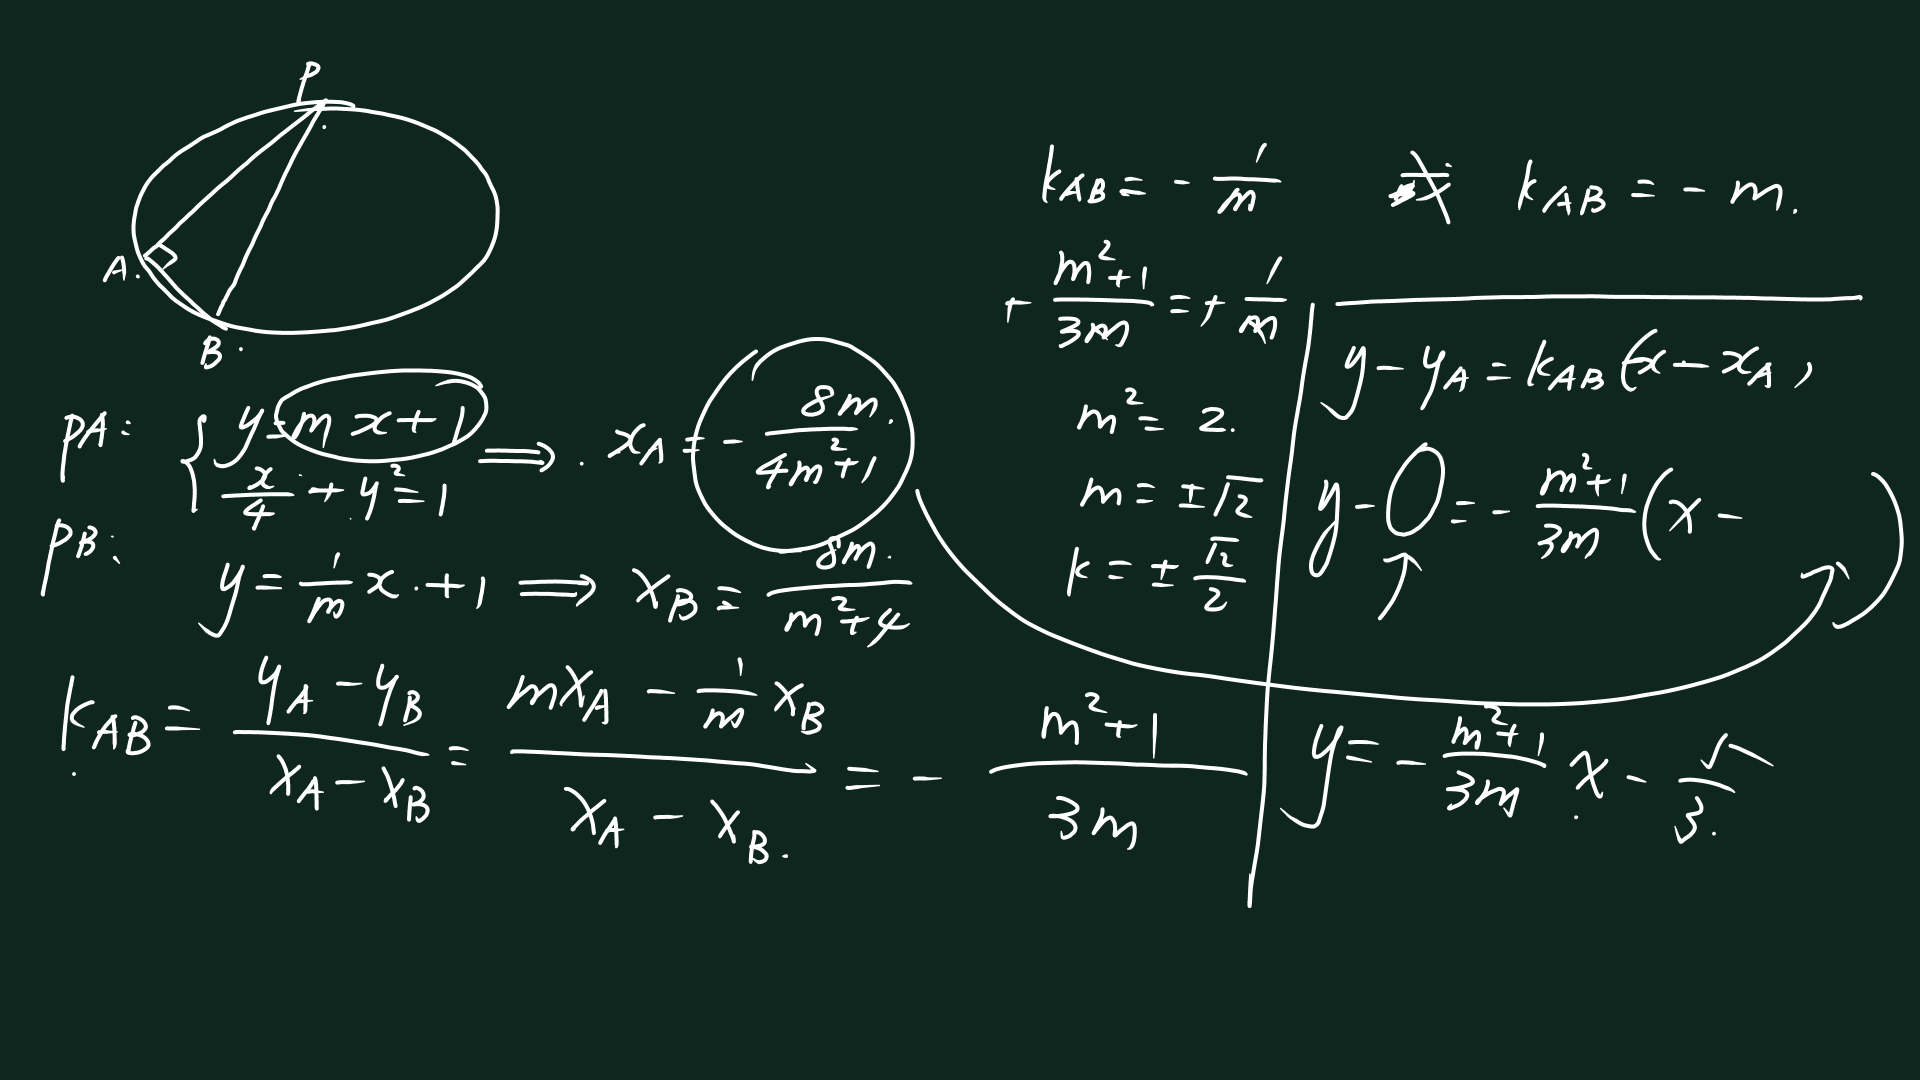 P
A.
B.
PA: { y = mx+1
x/4 + y² = 1 ⟹ . x_A = - 8m. / 4m²+1
PB: y = 1/m x . + 1 ⟹ x_B = 8m. / m²+4
k_AB = y_A - y_B / x_A - x_B = mx_A - 1/m x_B / x_A - x_B. = - m²+1 / 3m
k_AB = - 1/m 或 k_AB = - m.
+ m²+1 / 3m = + 1/m
m² = 2.
m = ±√2
k = ± √2/2
y - y_A = k_AB (x - x_A)
y - 0 = - m²+1 / 3m (x - )
y = - m²+1 / 3m x - 5/3.